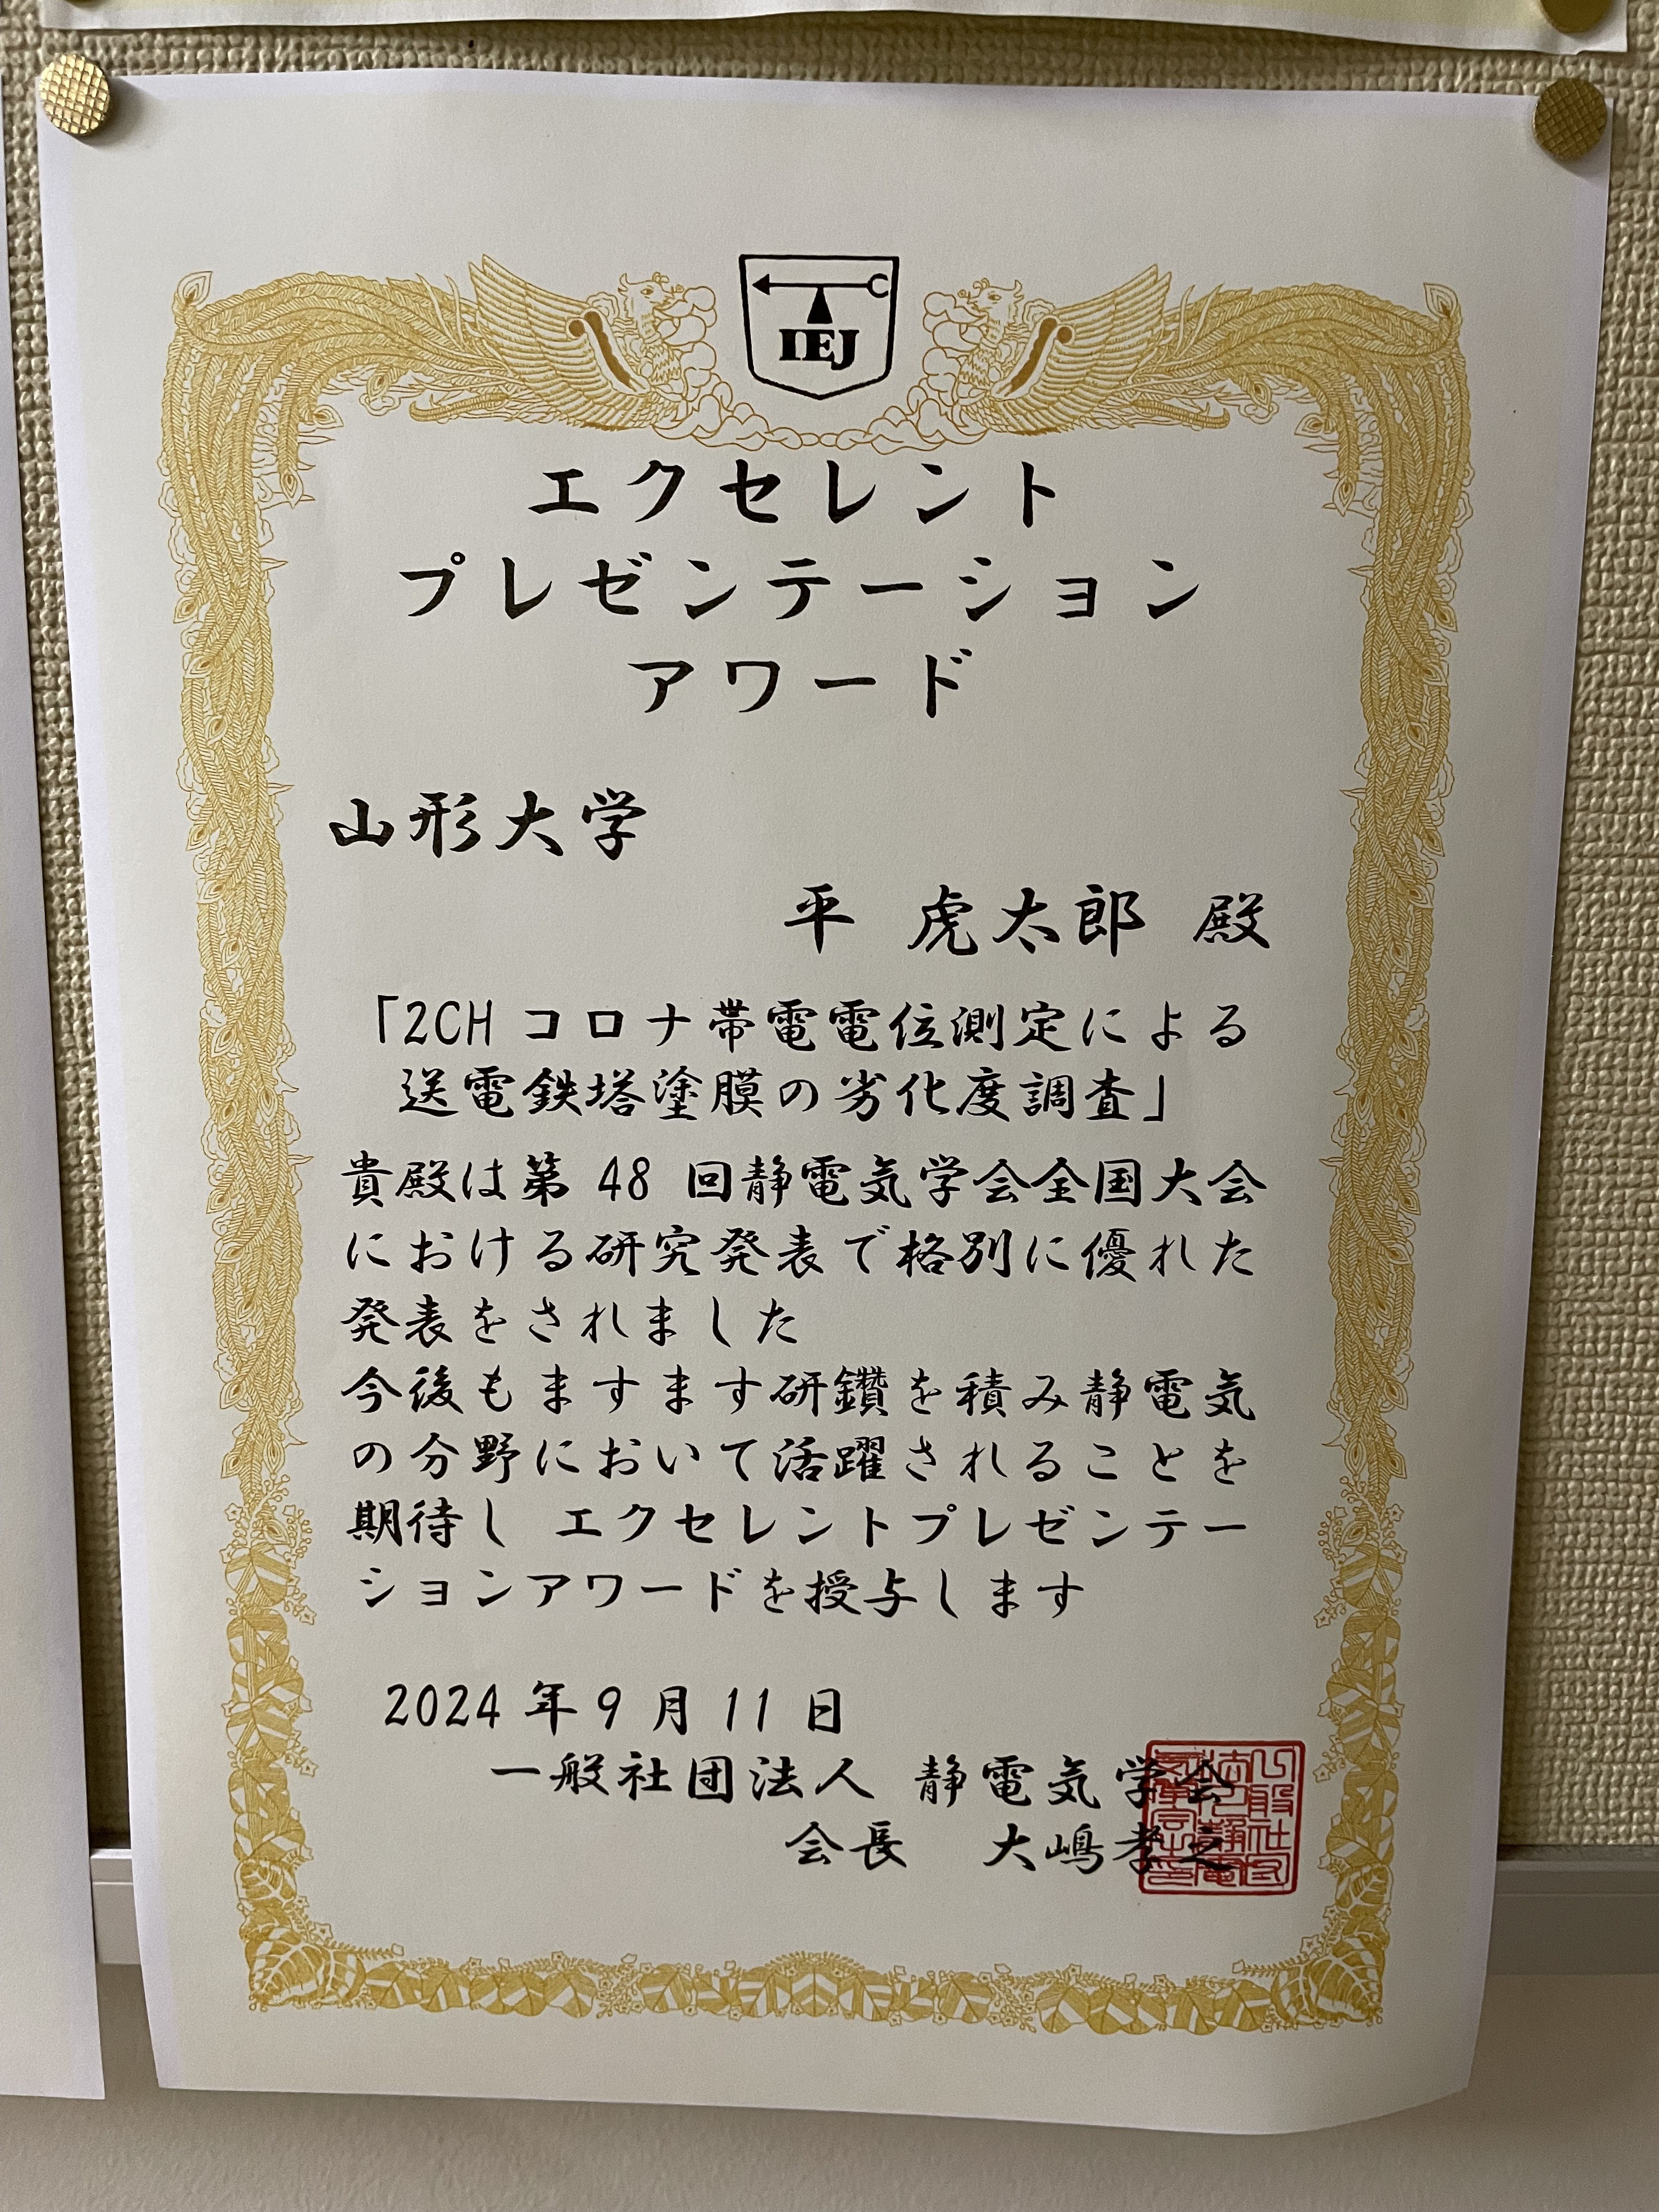 IEJ
エクセレント
プレゼンテーション
アワード
山形大学
平 虎太郎 殿
「2CH コロナ帯電電位測定による
送電鉄塔塗膜の劣化度調査」
貴殿は第 48 回静電気学会全国大会
における研究発表で格別に優れた
発表をされました
今後もますます研鑽を積み静電気
の分野において活躍されることを
期待し エクセレントプレゼンテー
ションアワードを授与します
2024 年 9 月 11 日
一般社団法人 静電気学会
会長 大嶋孝之